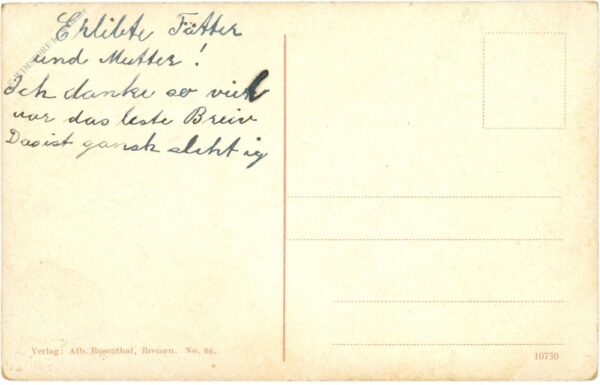 Erlibte Fätter
und Mutter!
Ich danke so viel
vor das leste Breiv
Das ist gansk slehtig
Verlag: Alb. Rosenthal, Bremen. No. 66.
10730